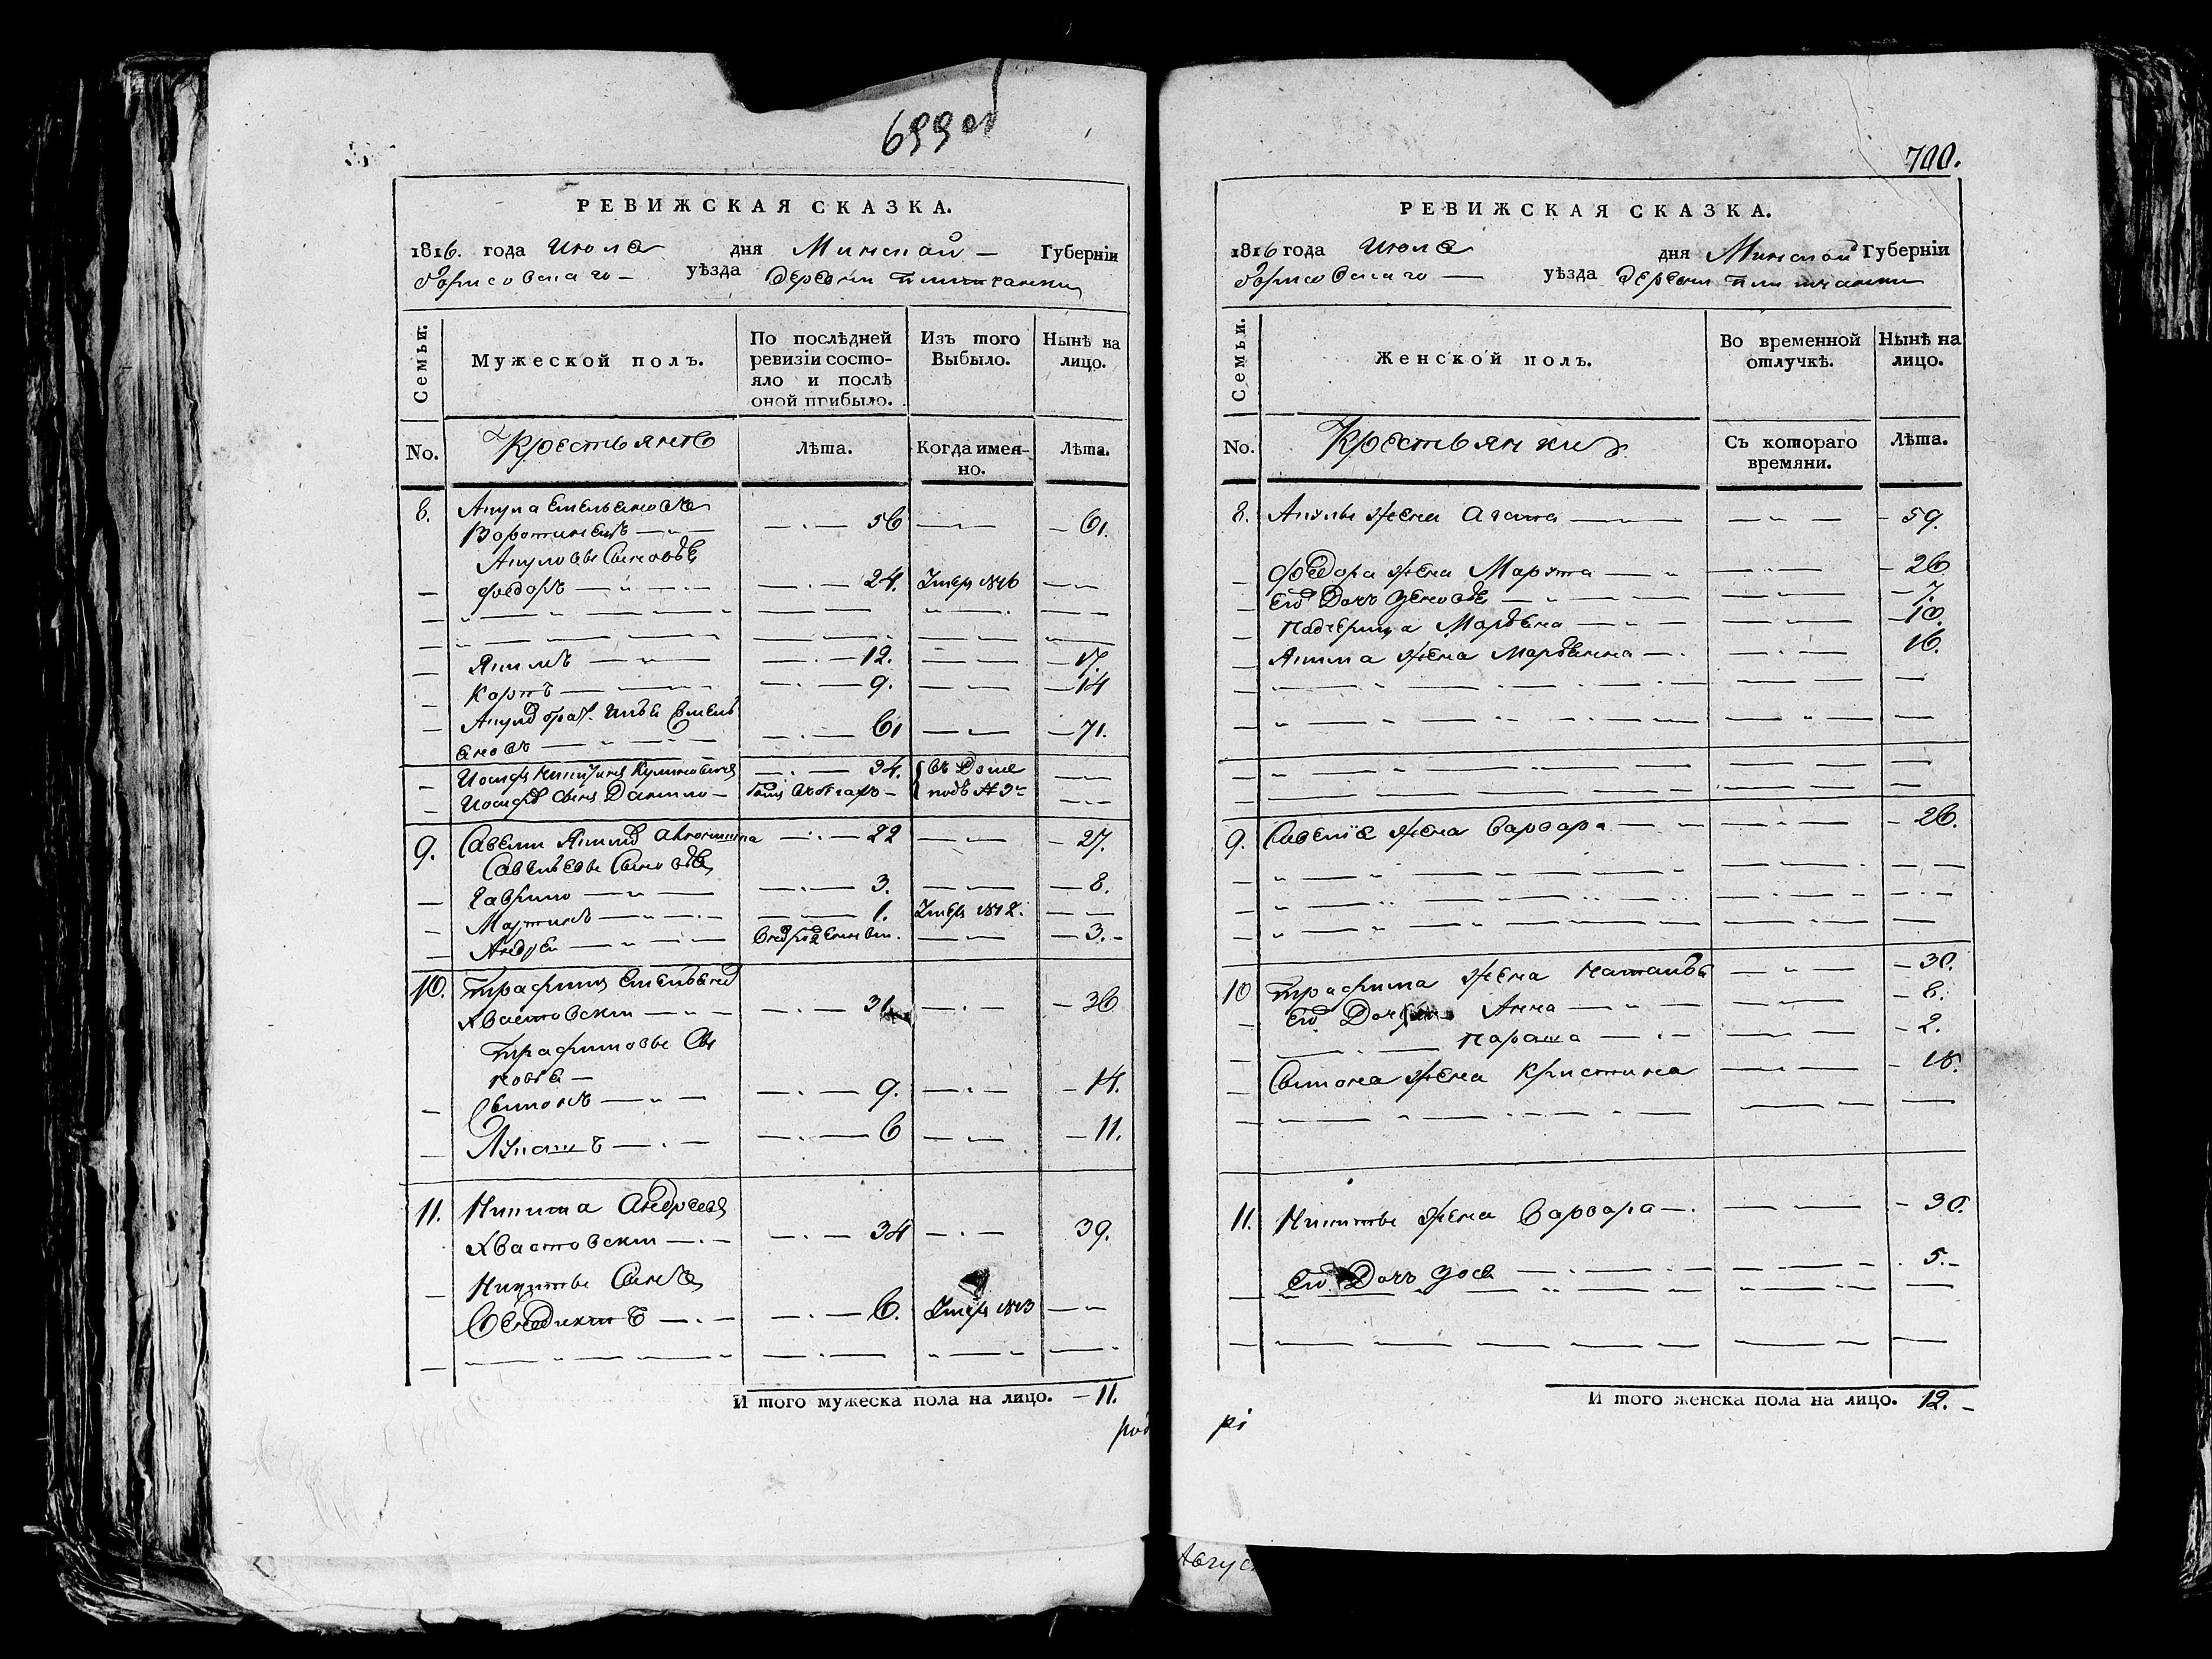 699 об
РЕВИЖСКАЯ СКАЗКА.
1816. года Июля дня Минской Губерніи
Борисовскаго уѣзда деревни
Семьи.
Мужеской полъ.
По послѣдней ревизіи состояло и послѣ оной прибыло.
Изъ того Выбыло.
Нынѣ на лицо.
No.
Крестьянъ
Лѣта.
Когда именно.
Лѣта.
8.
56 61.
Федоръ 24. Умеръ 1816
Якимъ 12. 17.
Карпъ 9. 14
61 71.
34. въ Доме
Іосифа сынъ Данило подъ №
9. Савели 22 27.
Савельевы Сыновья
Гаврило 3. 8.
Мартинъ 1. Умеръ 1812.
Андрей 3.
10. Трафимъ Емельяновъ
Хвастовски 31 36
Трафимовы Сы
новья
Симонъ 9. 14.
Лукашъ 6 11.
11. Никита Андреевъ
Хвастовски 34 39.
Никиты Сынъ
Бенедиктъ 6. Умеръ 1813
И того мужеска пола на лицо. 11.
700.
РЕВИЖСКАЯ СКАЗКА.
1816 года Июля дня Минской Губерніи
Борисовскаго уѣзда деревни
Семьи.
Женской полъ.
Во временной отлучкѣ.
Нынѣ на лицо.
No.
Крестьянки
Съ котораго времяни.
Лѣта.
8. жена Агата 59.
Федора жена Марута 26
Его Дочь 7.
Падчерица Марьяна 10.
Якима жена Марьянна 16.
9. Савелія жена Варвара 26.
10 Трафима жена Наталья 30.
Его Дочери Анна 8.
Параша 2.
Симона жена Кристина 18.
11. Никиты жена Варвара 30.
Его Дочь Зося 5.
И того женска пола на лицо. 12.
Авгус